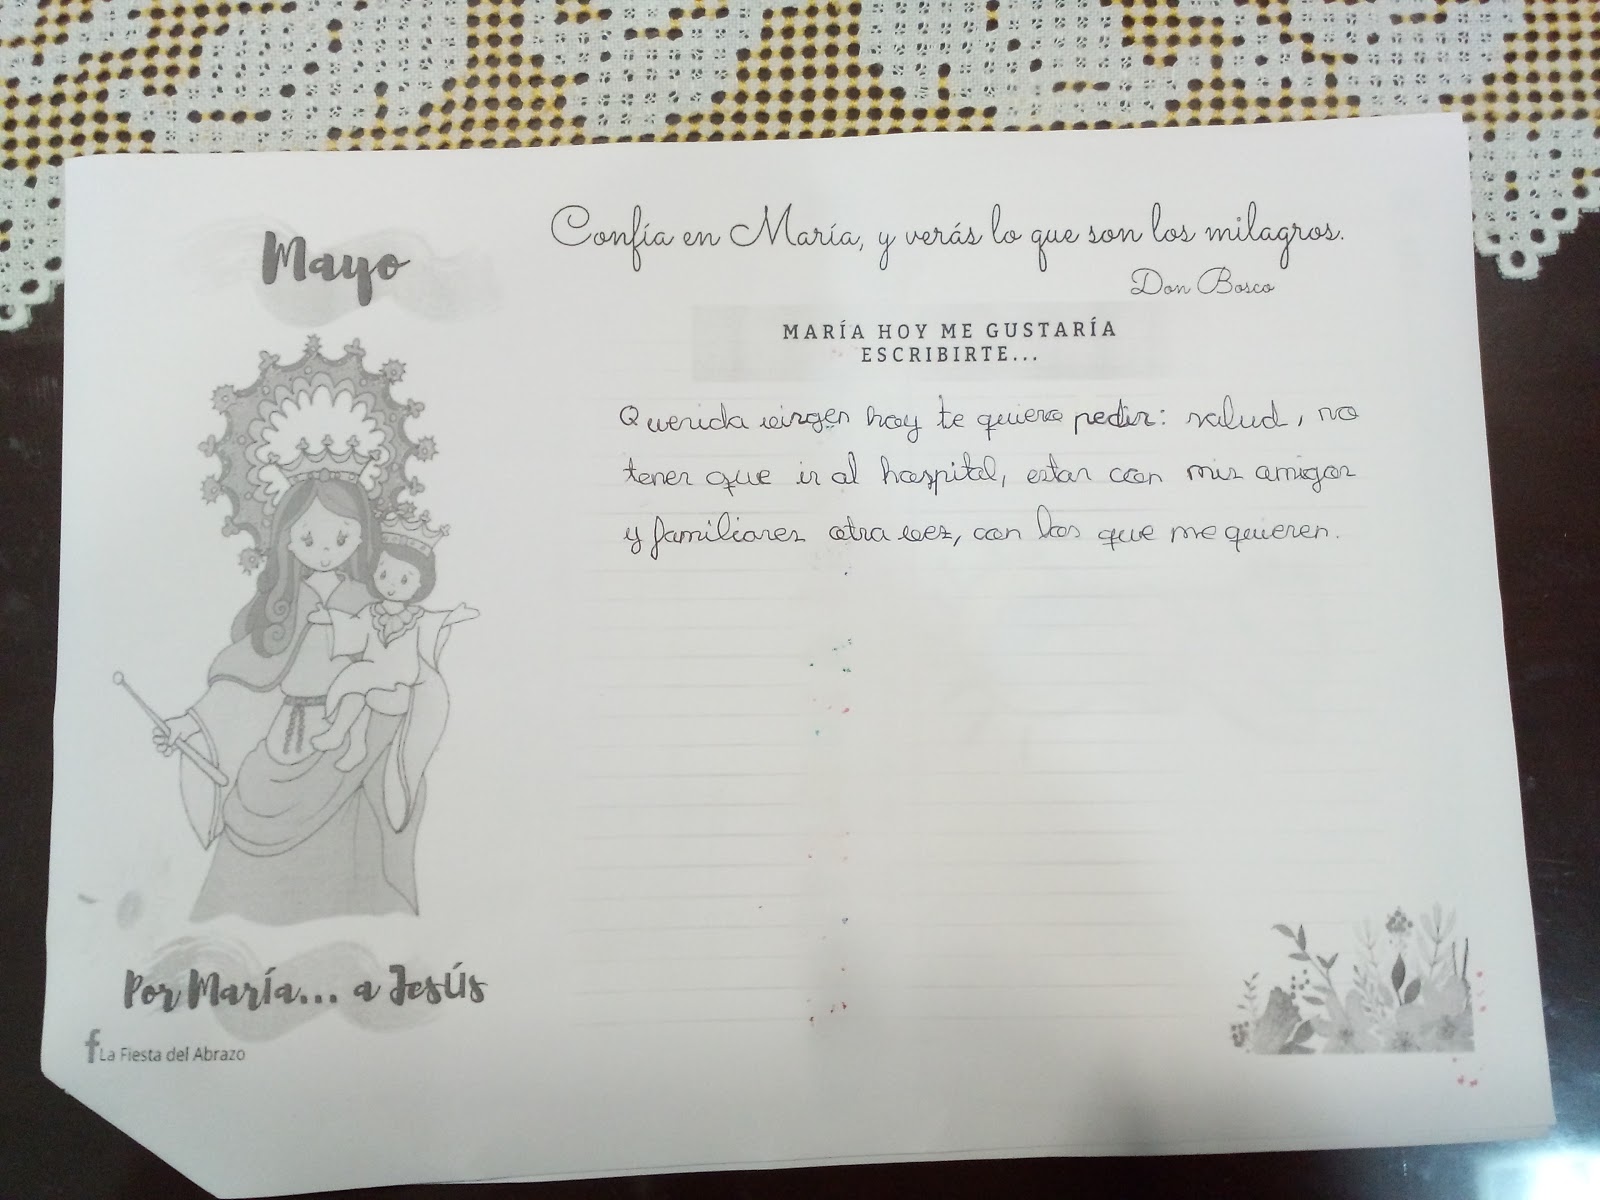 Mayo
Confía en María, y verás lo que son los milagros.
Don Bosco
MARÍA HOY ME GUSTARÍA
ESCRIBIRTE...
Querida virgen hoy te quiero pedir: salud, no
tener que ir al hospital, estar con mis amigos
y familiares otra vez, con los que me quieren.
Por María... a Jesús
f La Fiesta del Abrazo